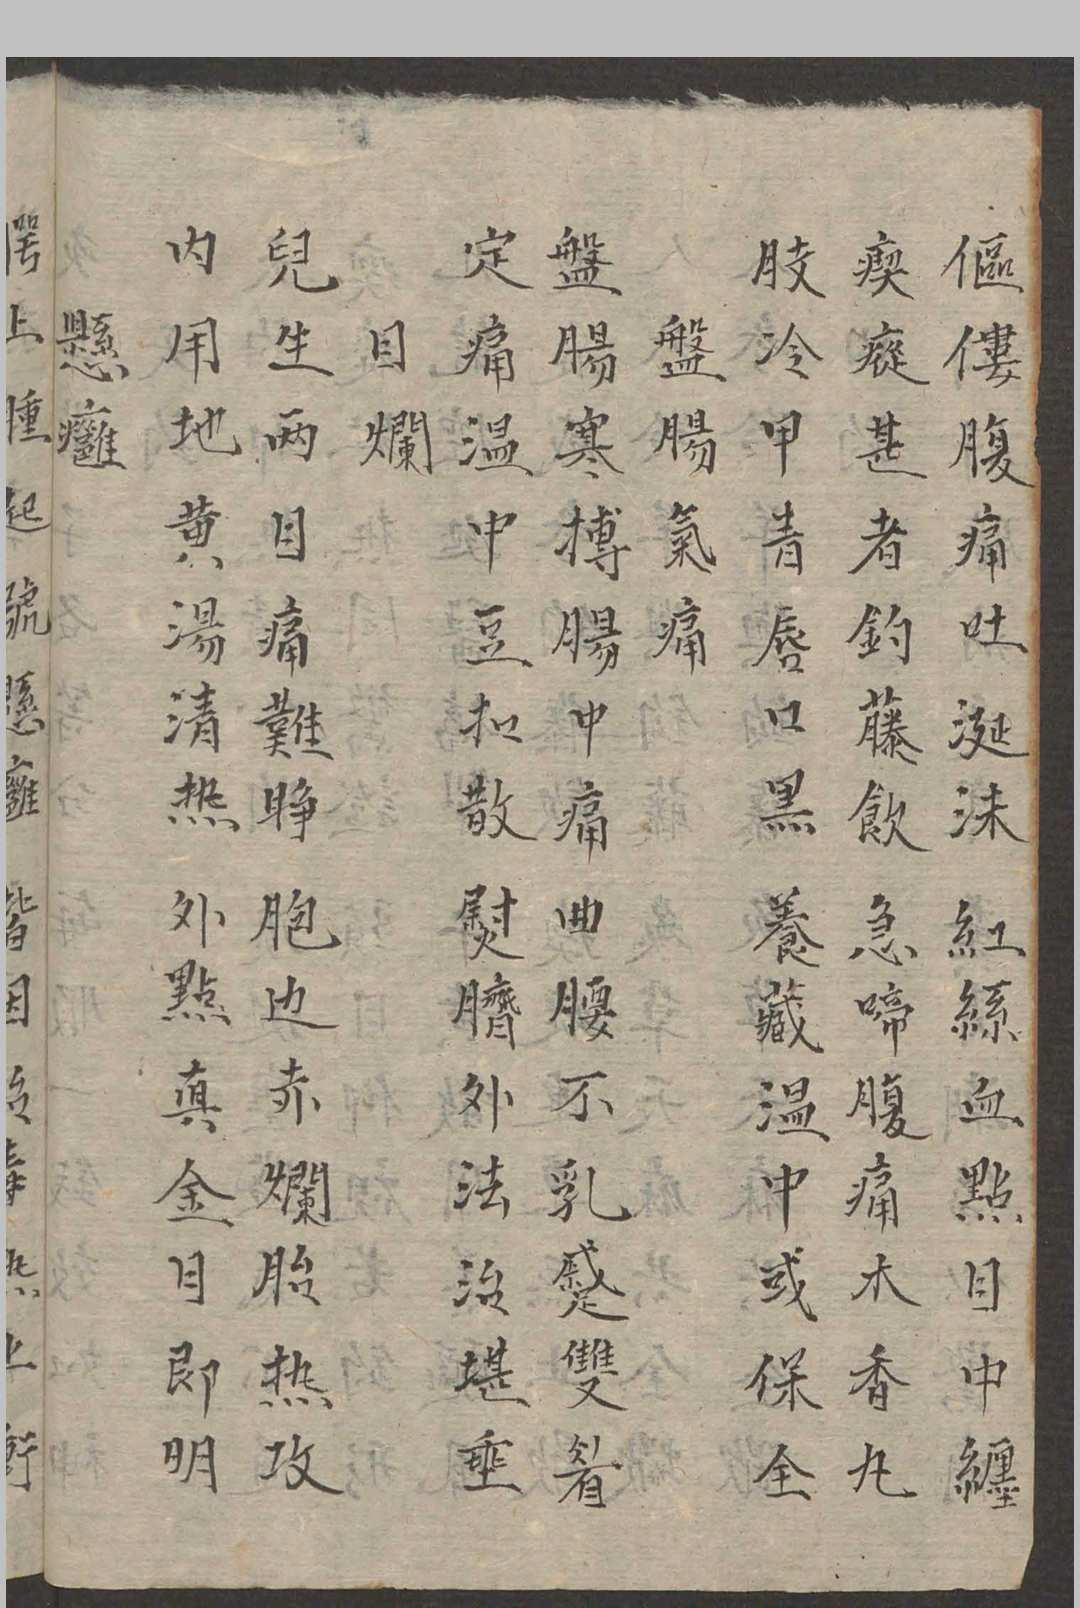 傴僂腹痛吐涎沫 紅絲血點目中纏
瘈瘲甚者鈎藤飲 急啼腹痛木香丸
肢冷甲青唇口黑 養藏温中或保全
盤腸氣痛
盤腸寒搏腸中痛 曲腰不乳蹙雙眉
定痛温中豆扣散 熨臍外法治堪垂
目爛
兒生兩目痛難睜 胞边赤爛胎热攻
内用地黄湯清热 外點真金目即明
懸癰
腭上腫起號懸癰 皆因胎毒热上衝